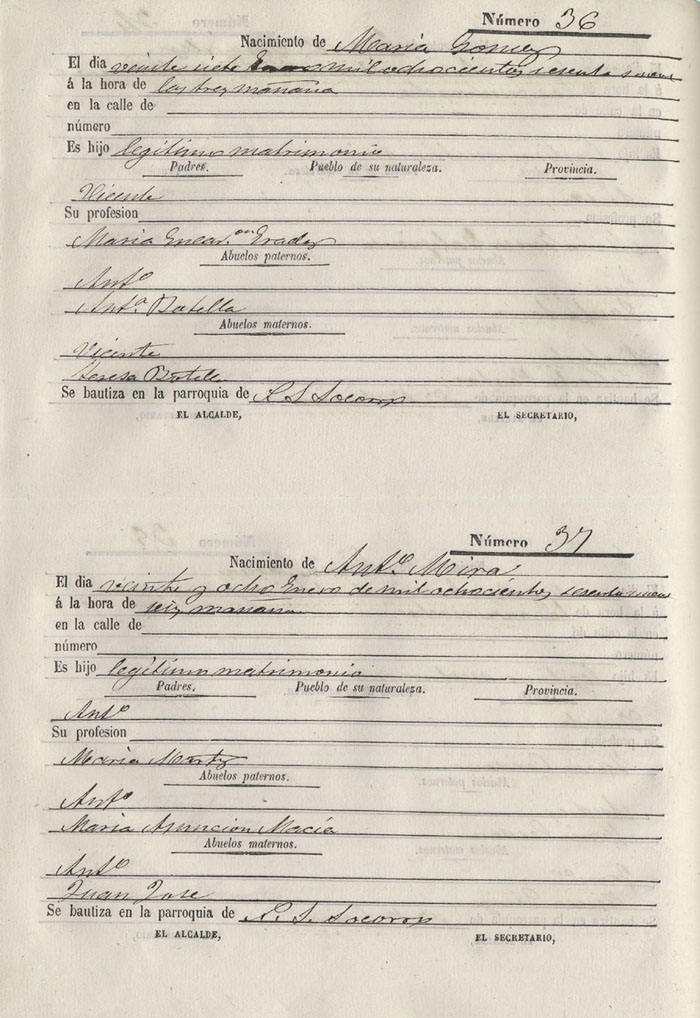 Número 36
Nacimiento de Maria Gomez
El dia veinte siete Enero mil ochocientos sesenta nueve
á la hora de las tres mañana
en la calle de
número
Es hijo legitimo matrimonio
Padres. Pueblo de su naturaleza. Provincia.
Vicente
Su profesion
Maria Encar.on Grades
Abuelos paternos.
Ant.o
Ant.a Botella
Abuelos maternos.
Vicente
Teresa Botella
Se bautiza en la parroquia de N. S. Socorro
EL ALCALDE, EL SECRETARIO,
Número 37
Nacimiento de Ant.o Mira
El dia veinte y ocho Enero de mil ochocientos sesenta nueve
á la hora de seis mañana
en la calle de
número
Es hijo legitimo matrimonio
Padres. Pueblo de su naturaleza. Provincia.
Ant.o
Su profesion
Maria Martz
Abuelos paternos.
Ant.o
Maria Asuncion Macía
Abuelos maternos.
Ant.o
Juan Jose
Se bautiza en la parroquia de N. S. Socorro
EL ALCALDE, EL SECRETARIO,